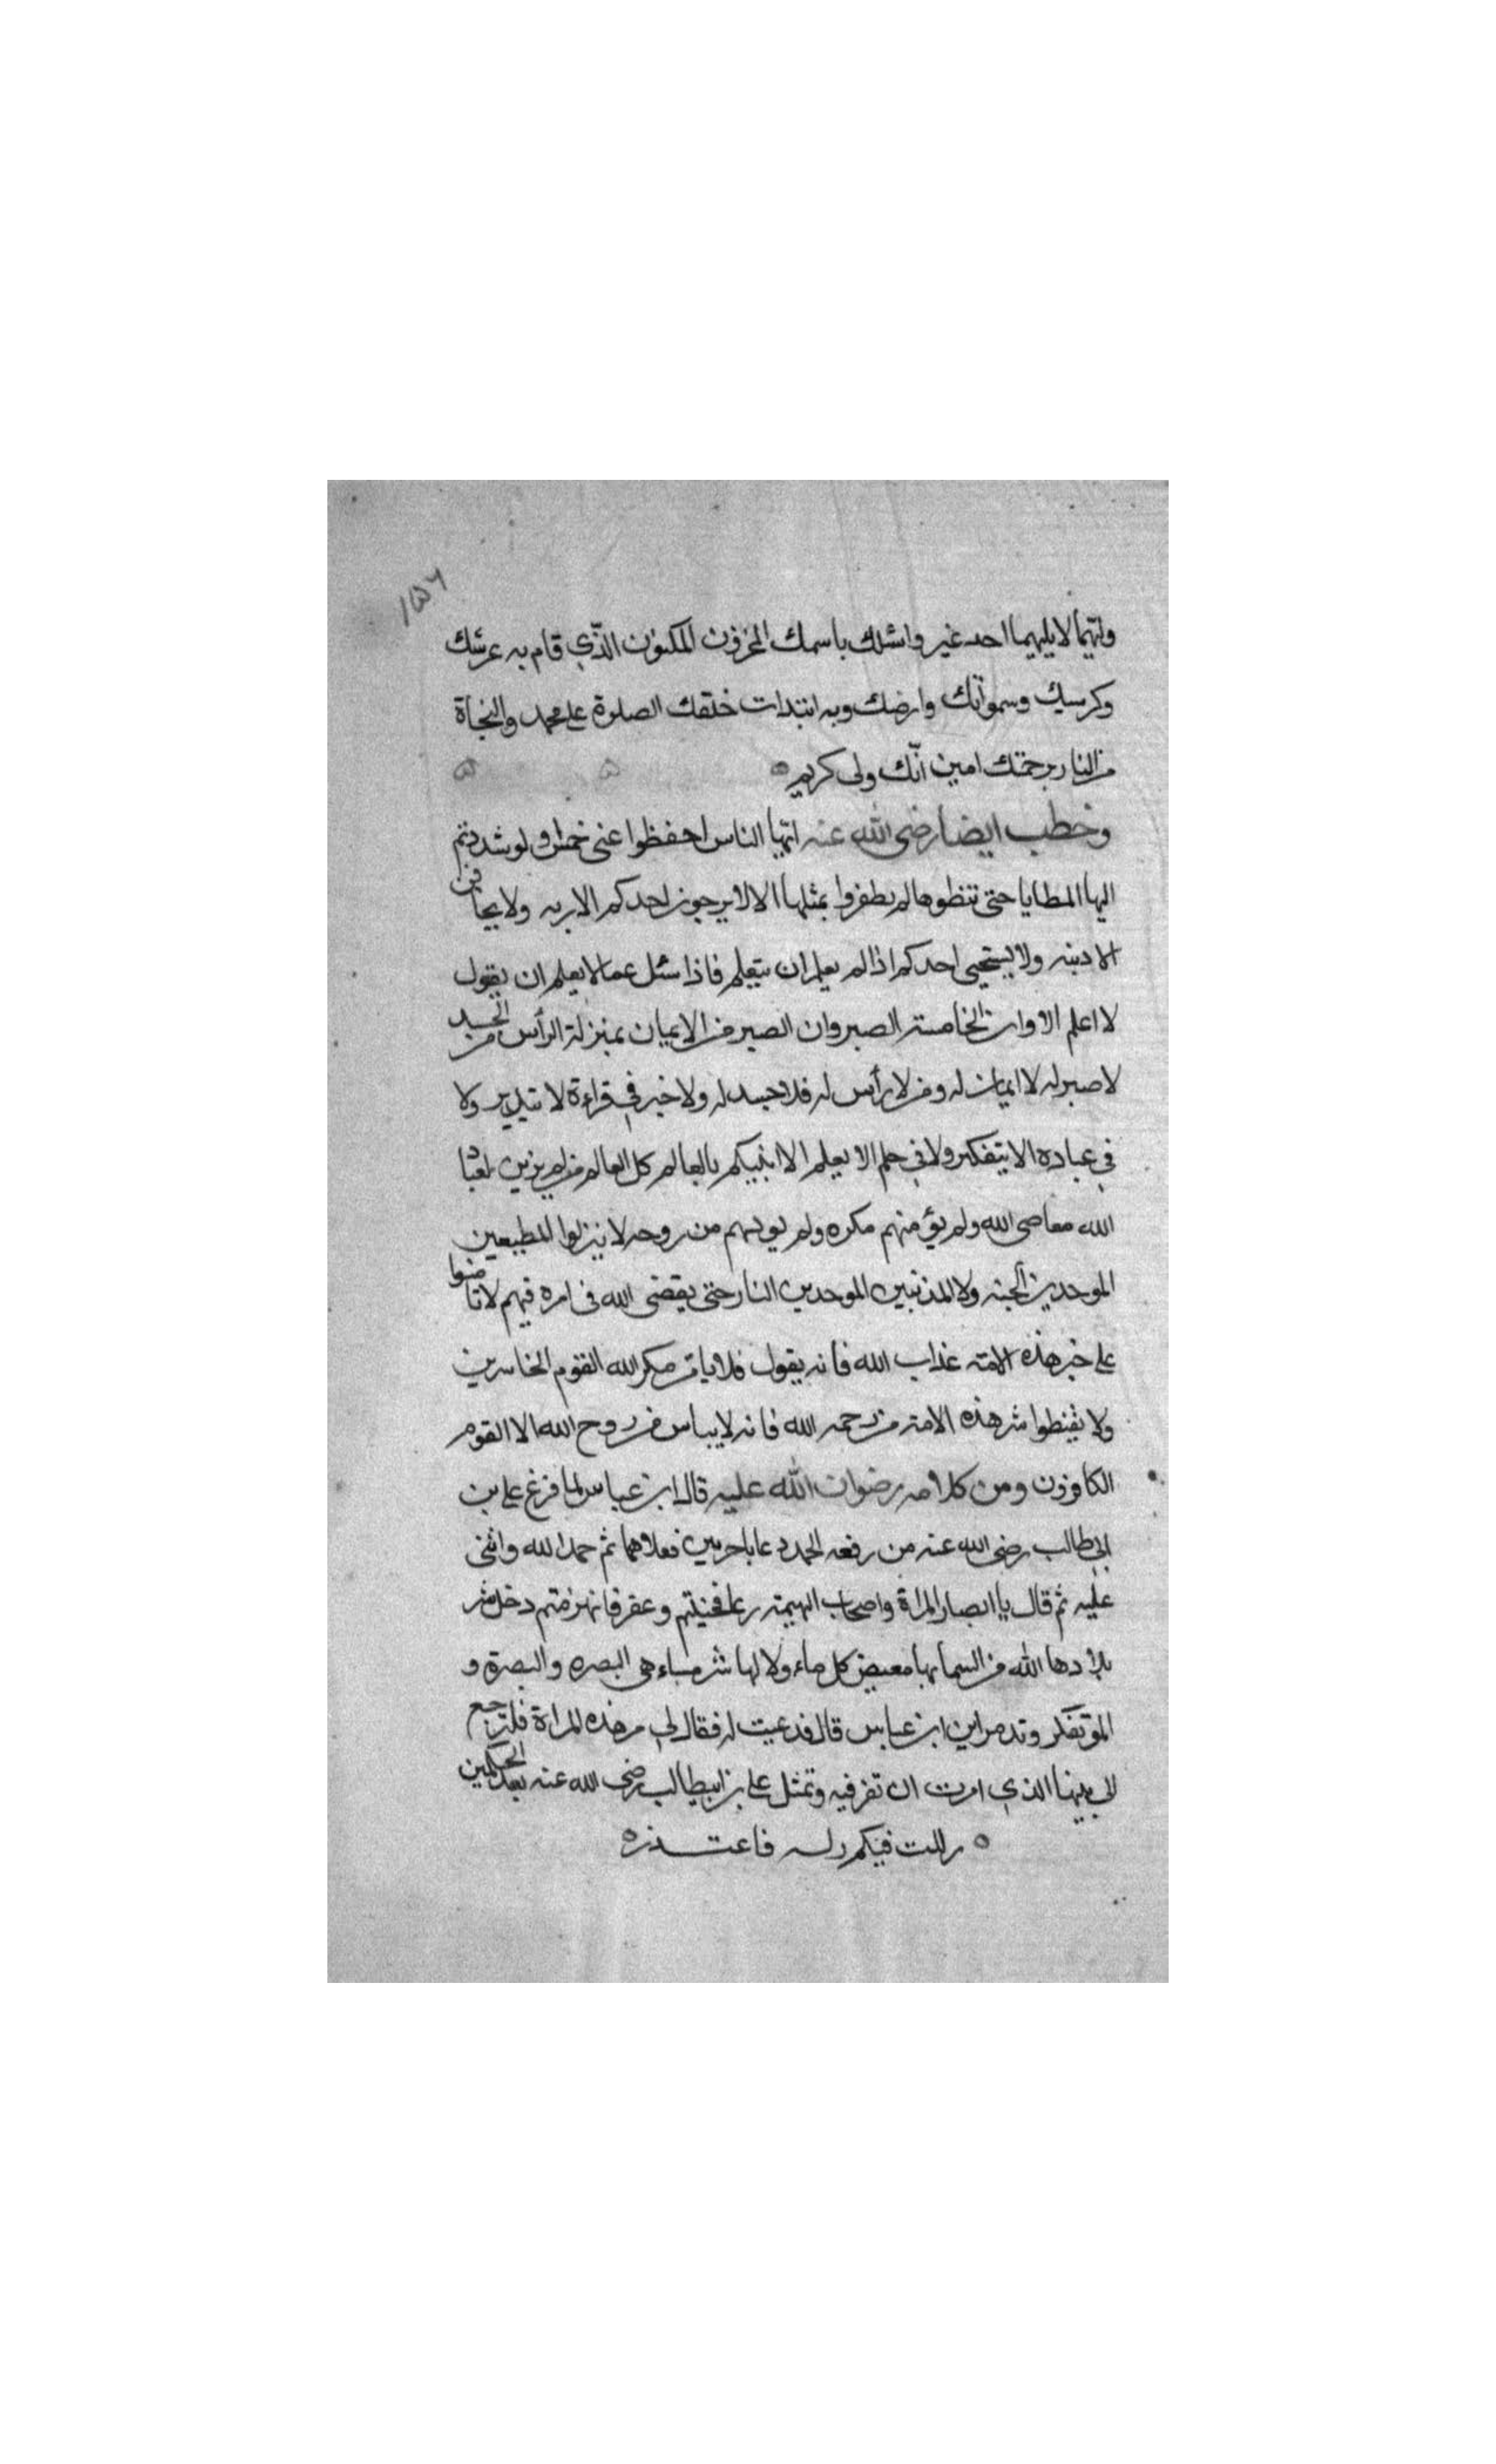 ١٥٦
وانهما لا يليهما احد غير واسئلك باسمك المخزون المكنون الذّي قام به عرشك
وكرسيك وسمواتك وارضك وبه ابتدات خلقك الصلوة على محمد والنجاة
من النار برحمتك امين انّك ولى كريم
وخطب ايضا رضى الله عنه ايّها الناس احفظوا عنى خمسا ولو شددتم
اليها المطايا حتى تنظوها لم يظفروا بمثلها الا لا يرجون احدكم الا ربه ولا يخافن
الا ذنبه ولا يستحيى احدكم اذا لم يعلم ان يتعلم فاذا سئل عما لا يعلم ان يقول
لا اعلم الا وان الخامسة الصبر وان الصبر من الايمان بمنزلة الرأس من الجسد
لا صبر له لا ايمان له ومن لا رأس له فلا جسد له ولا خير في قراءة لا بتدبر ولا
في عبادة الا بتفكر ولا في حلم الا بعلم الا انبيكم بالعالم كل العالم من لم يزين لعباد
الله معاصى الله ولم يؤمنهم مكره ولم يويسهم من روحه لا ينزلوا المطيعين
الموحدين الجنه ولا المذنبين الموحدين النار حتى يقضى الله فى امره فيهم لا تامنوا
على خير هذه الامة عذاب الله فانه يقول فلا يامن مكر الله القوم الخاسرين
ولا يقنطوا شر هذه الامة من رحمه الله فانه لا يياس من روح الله الا القوم
الكافرون ومن كلامه رضوان الله عليه قال ابن عباس لما فرغ على بن
ابى طالب رضى الله عنه من رفعه الجمد دعا باجرتين فعلاهما ثم حمد الله واثنى
عليه ثم قال يا انصار المراة واصحاب البهيمة رغا فحنيتم وعقر فانهزمتم دخلت شر
بلاد الله من السما بها مغيض كل ماء ولا لها شر مساء هى البصره والبصرة و
الموتفكر وتدمر اين ابن عباس قال فدعيت له فقال لى مر هذه المراة فلترجع
الى بيتها الذي امرت ان تقر فيه وتمثل على بن ابيطالب رضى الله عنه بعد الحكمين
زللت فيكم زله فاعتذره